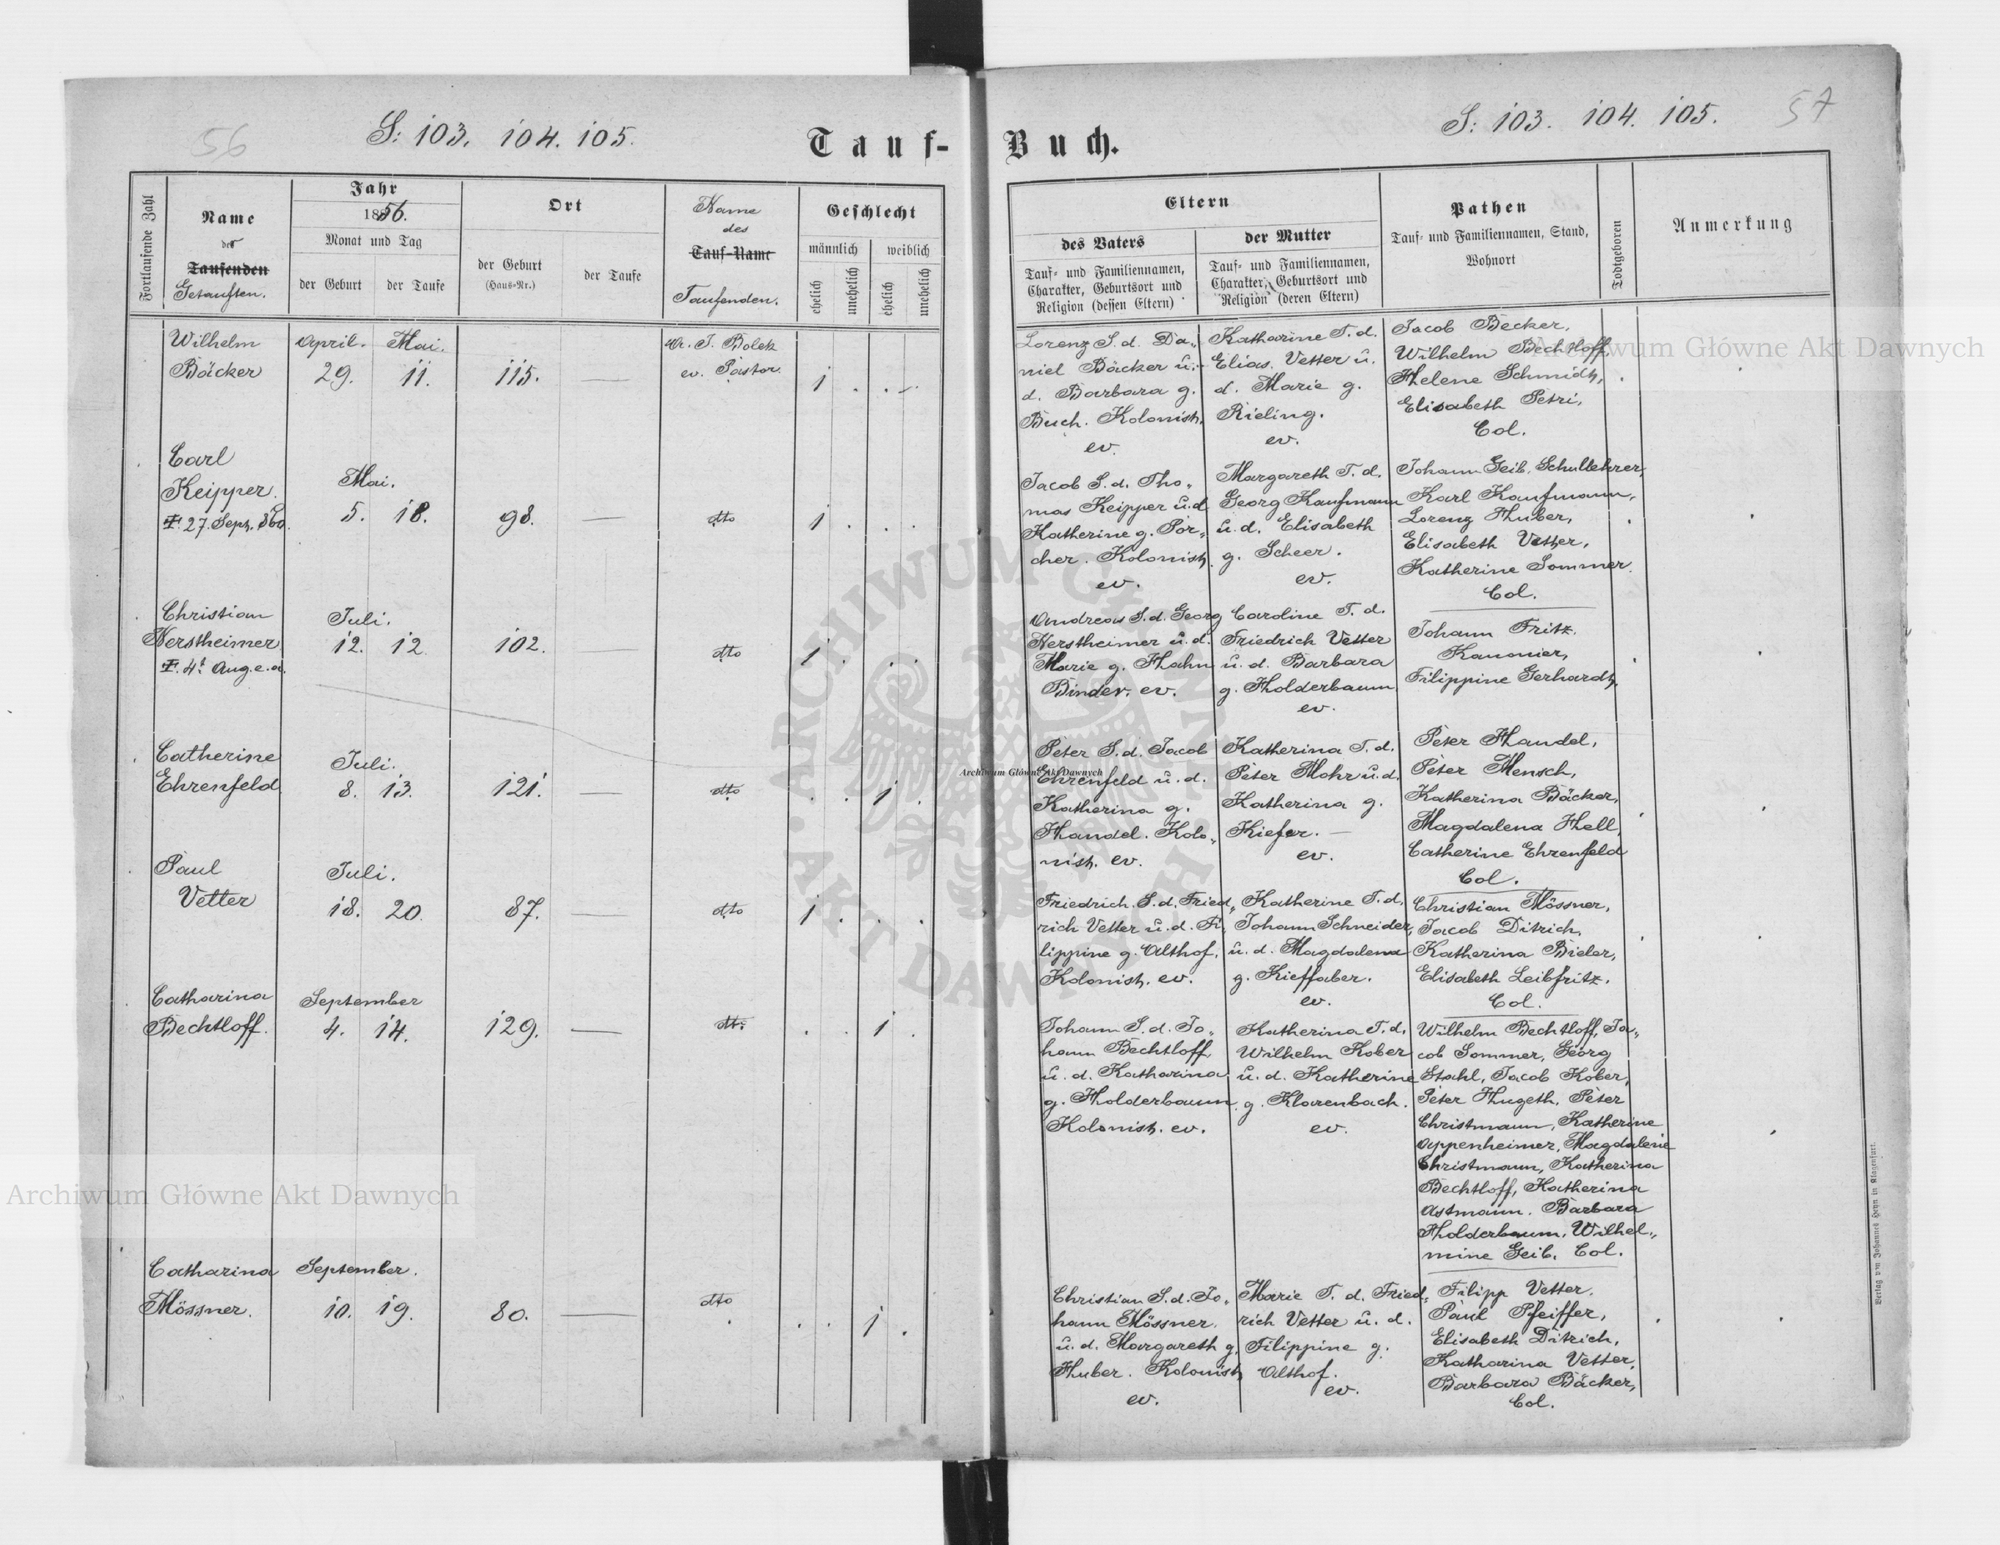 56
S: 103. 104. 105.
Tauf-
Fortlaufende Zahl
Name
der
Taufenden
Getauften.
Jahr
1856.
Monat und Tag
der Geburt
der Taufe
Ort
der Geburt
(Haus-Nr.)
der Taufe
Name
des
Tauf-Name
Taufenden.
Geschlecht
männlich
weiblich
ehelich
unehelich
ehelich
unehelich
Wilhelm
Bäcker
April. Mai.
29. 11. 115. —
J. Bolek
ev. Pastor.
1 . . .
Carl
Keipper.
27. Sept. 860.
Mai.
5. 18. 98. — dto 1 . . .
Christian
Herstheimer
4t Aug. e.a.
Juli.
12. 12. 102. dto 1 . . .
Catherine
Ehrenfeld
Juli.
8. 13. 121. — dto . . 1 .
Paul
Vetter
Juli.
18. 20. 87. — dto 1 . . .
Catharina
Bechtloff.
September
4. 14. 129. — dto . . 1 .
Catharina
Mössner.
September.
10. 19. 80. — dto . . 1 .
Buch.
S: 103. 104. 105.
57
Eltern
des Vaters
Tauf- und Familiennamen,
Charakter, Geburtsort und
Religion (dessen Eltern)
der Mutter
Tauf- und Familiennamen,
Charakter, Geburtsort und
Religion (deren Eltern)
Pathen
Tauf- und Familiennamen, Stand,
Wohnort
Todtgeboren
Anmerkung
Lorenz S. d. Da„
niel Bäcker u.
d. Barbara g.
Buch. Kolonist.
ev.
Katharine T. d.
Elias Vetter u.
d. Marie g.
Rieling.
ev.
Jacob Becker,
Wilhelm Bechtloff,
Helene Schmidt,
Elisabeth Petri,
Col.
Jacob S. d. Tho„
mas Keipper u. d.
Katherine g. Por„
cher. Kolonist.
ev.
Margareth T. d.
Georg Kaufmann
u. d. Elisabeth
g. Scheer.
ev.
Johann Geib, Schullehrer,
Karl Kaufmann,
Lorenz Huber,
Elisabeth Vetter,
Katherine Sommer.
Col.
Andreas S. d. Georg
Herstheimer u. d.
Marie g. Hahn
Binder. ev.
Caroline T. d.
Friedrich Vetter
u. d. Barbara
g. Holderbaum
ev.
Johann Fritz.
Kanonier,
Filippine Gerhardt.
Peter S. d. Jacob
Ehrenfeld u. d.
Katherina g.
Handel. Kolo„
nist. ev.
Katherina T. d.
Peter Mohr u. d.
Katherina g.
Kiefer. —
ev.
Peter Handel,
Peter Mensch,
Katherina Bäcker,
Magdalena Hell,
Catherine Ehrenfeld
Col.
Friedrich S. d. Fried„
rich Vetter u. d. Fi„
lippine g. Althof,
Kolonist. ev.
Katherine T. d.
Johann Schneider,
u. d. Magdalena
g. Kieffaber.
ev.
Christian Mössner,
Jacob Ditrich,
Katherina Bieler,
Elisabeth Leibfritz.
Col.
Johann S. d. Jo„
hann Bechtloff,
u. d. Katharina
g. Holderbaum.
Kolonist. ev.
Katherina T. d.
Wilhelm Kober
u. d. Katherine
g. Klarenbach.
ev.
Wilhelm Bechtloff, Ja„
cob Sommer, Georg
Stahl, Jacob Kober,
Peter Hugeth, Peter
Christmann, Katherine
Oppenheimer, Magdalene
Christmann, Katherina
Bechtloff, Katherina
Astmann. Barbara
Holderbaum, Wilhel„
mine Geib. Col.
Christian S. d. Jo„
hann Mössner.
u. d. Margareth g.
Huber. Kolonist
ev.
Marie T. d. Fried„
rich Vetter u. d.
Filippine g.
Althof.
ev.
Filipp Vetter.
Paul Pfeiffer,
Elisabeth Ditrich,
Katharina Vetter,
Barbara Bäcker,
Col.
Verlag von Johannes Heyn in Klagenfurt.
Archiwum Główne Akt Dawnych
Archiwum Główne Akt Dawnych
Archiwum Główne Akt Dawnych
ARCHIWUM GŁÓWNE AKT DAWNYCH